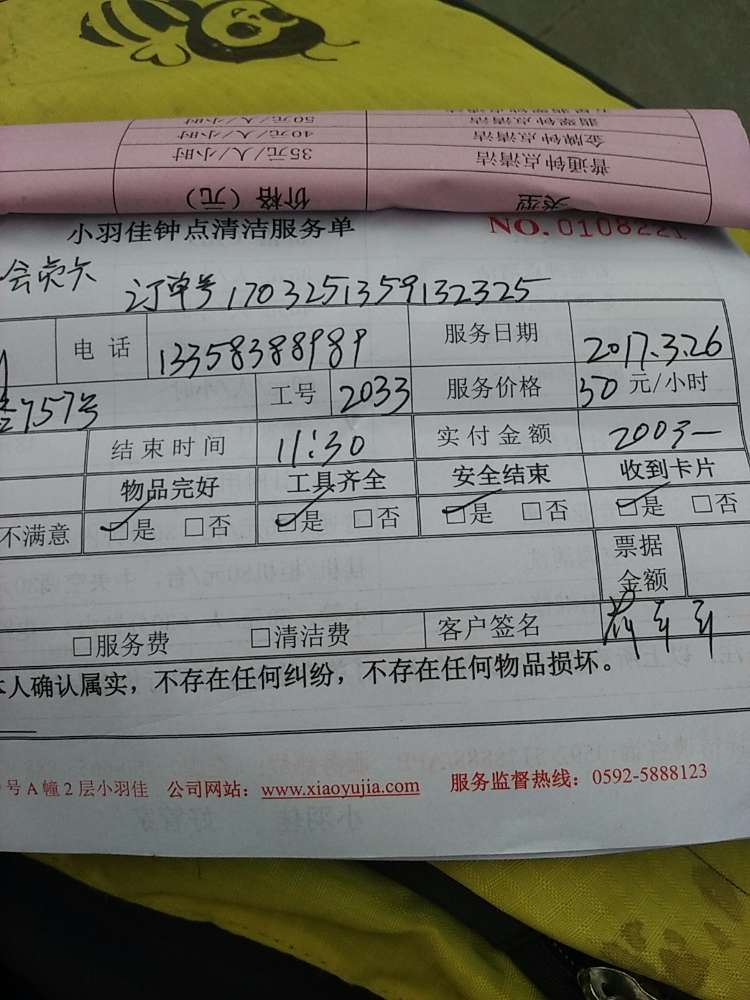 五星翡翠钟点清洁
翡翠钟点清洁 50元/人/小时
金牌钟点清洁 40元/人/小时
普通钟点清洁 35元/人/小时
类型 价格（元）
小羽佳钟点清洁服务单 NO.0108221
订单号1703251359132325
电话 13358388989 服务日期 2017.3.26
757号 工号 2033 服务价格 50元/小时
结束时间 11:30 实付金额 2003—
物品完好 工具齐全 安全结束 收到卡片
不满意 ☑是 □否 ☑是 □否 ☑是 □否 ☑是 □否
票据
金额
□服务费 □清洁费 客户签名
本人确认属实，不存在任何纠纷，不存在任何物品损坏。
号A幢2层小羽佳 公司网站：www.xiaoyujia.com 服务监督热线：0592-5888123